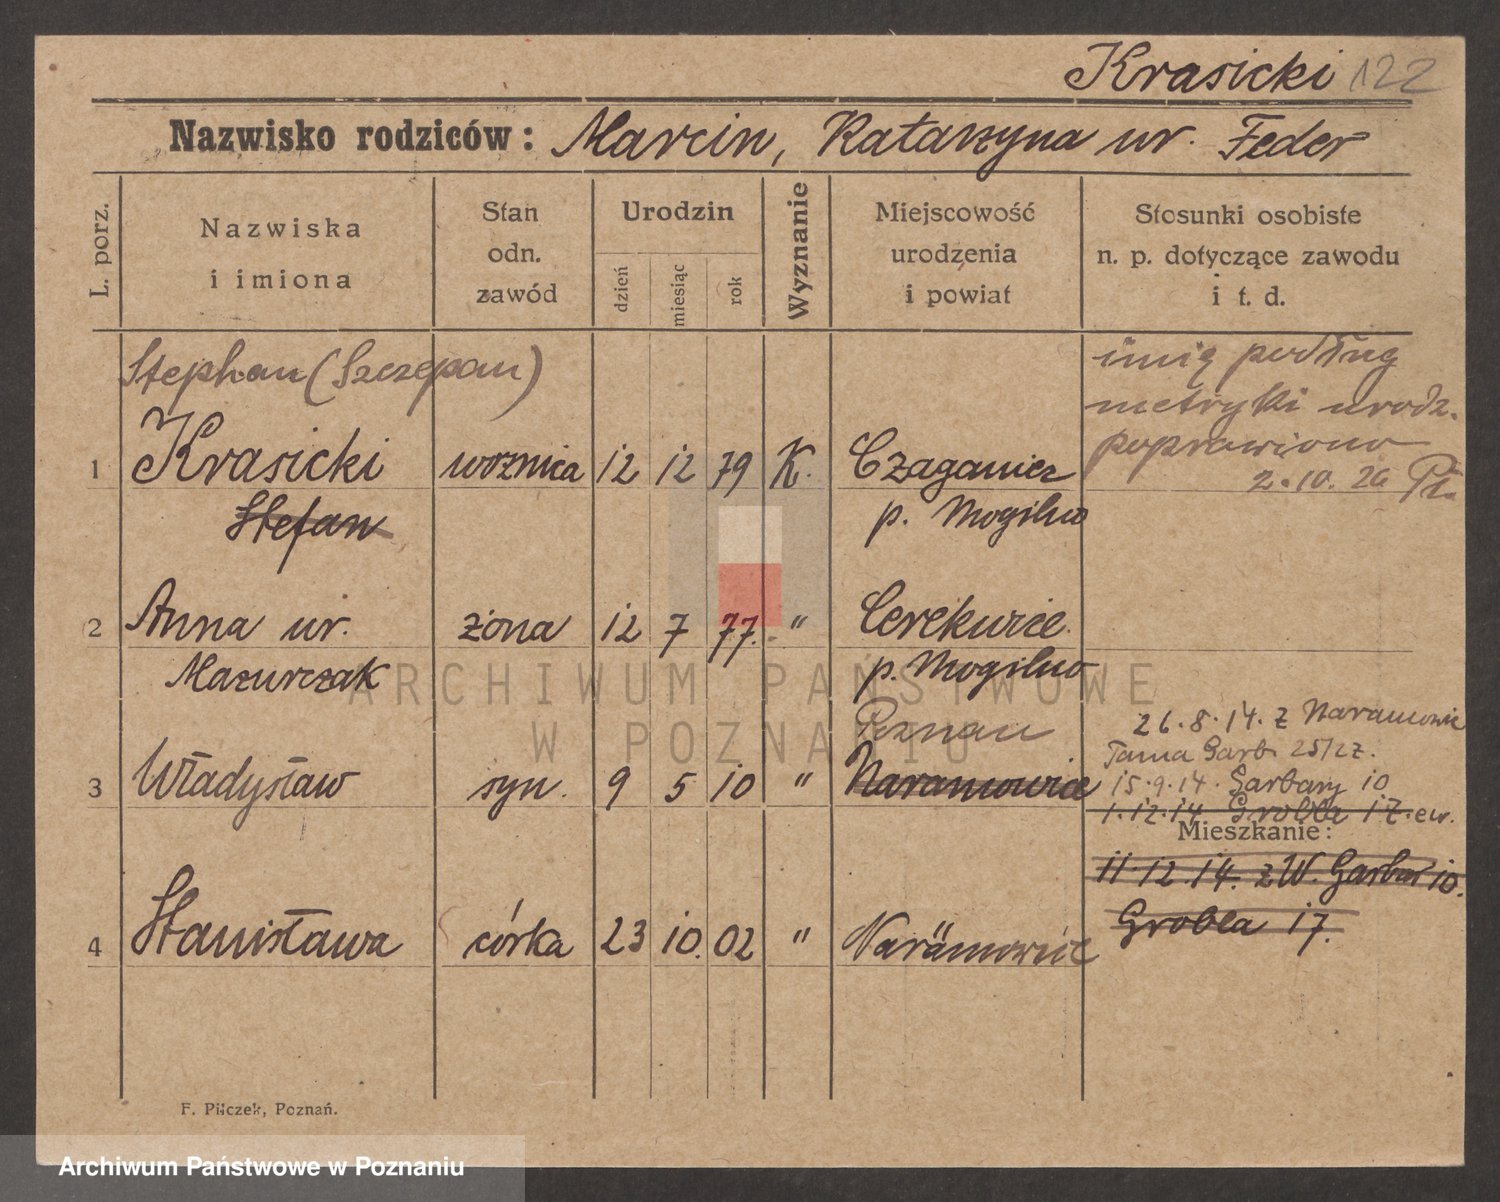 Krasicki 122
Nazwisko rodziców: Marcin, Katarzyna ur. Feder
L. porz.
Nazwiska
i imiona
Stan
odn.
zawód
Urodzin
dzień
miesiąc
rok
Wyznanie
Miejscowość
urodzenia
i powiat
Stosunki osobiste
n. p. dotyczące zawodu
i t. d.
Stephan (Szczepan)
imię podług
metryki urodz.
poprawiono
2.10.26
1 Krasicki woznica 12 12 79 K. Czaganiec
Stefan p. Mogilno
2 Anna ur. żona 12 7 77. " Cerekwice.
Mazurczak p. Mogilno
Poznan
3 Władysław syn. 9 5 10 " Naramowice
26.8.14. z Naramowic
Tama Garb. 25/27.
15.9.14. Garbary 10
1.12.14 Grobla 17. ew.
Mieszkanie:
11.12.14. z W. Garbar 10.
Grobla 17.
4 Stanisława córka 23 10. 02 " Naramowice
F. Pilczek, Poznań.
ARCHIWUM PAŃSTWOWE
W POZNANIU
Archiwum Państwowe w Poznaniu